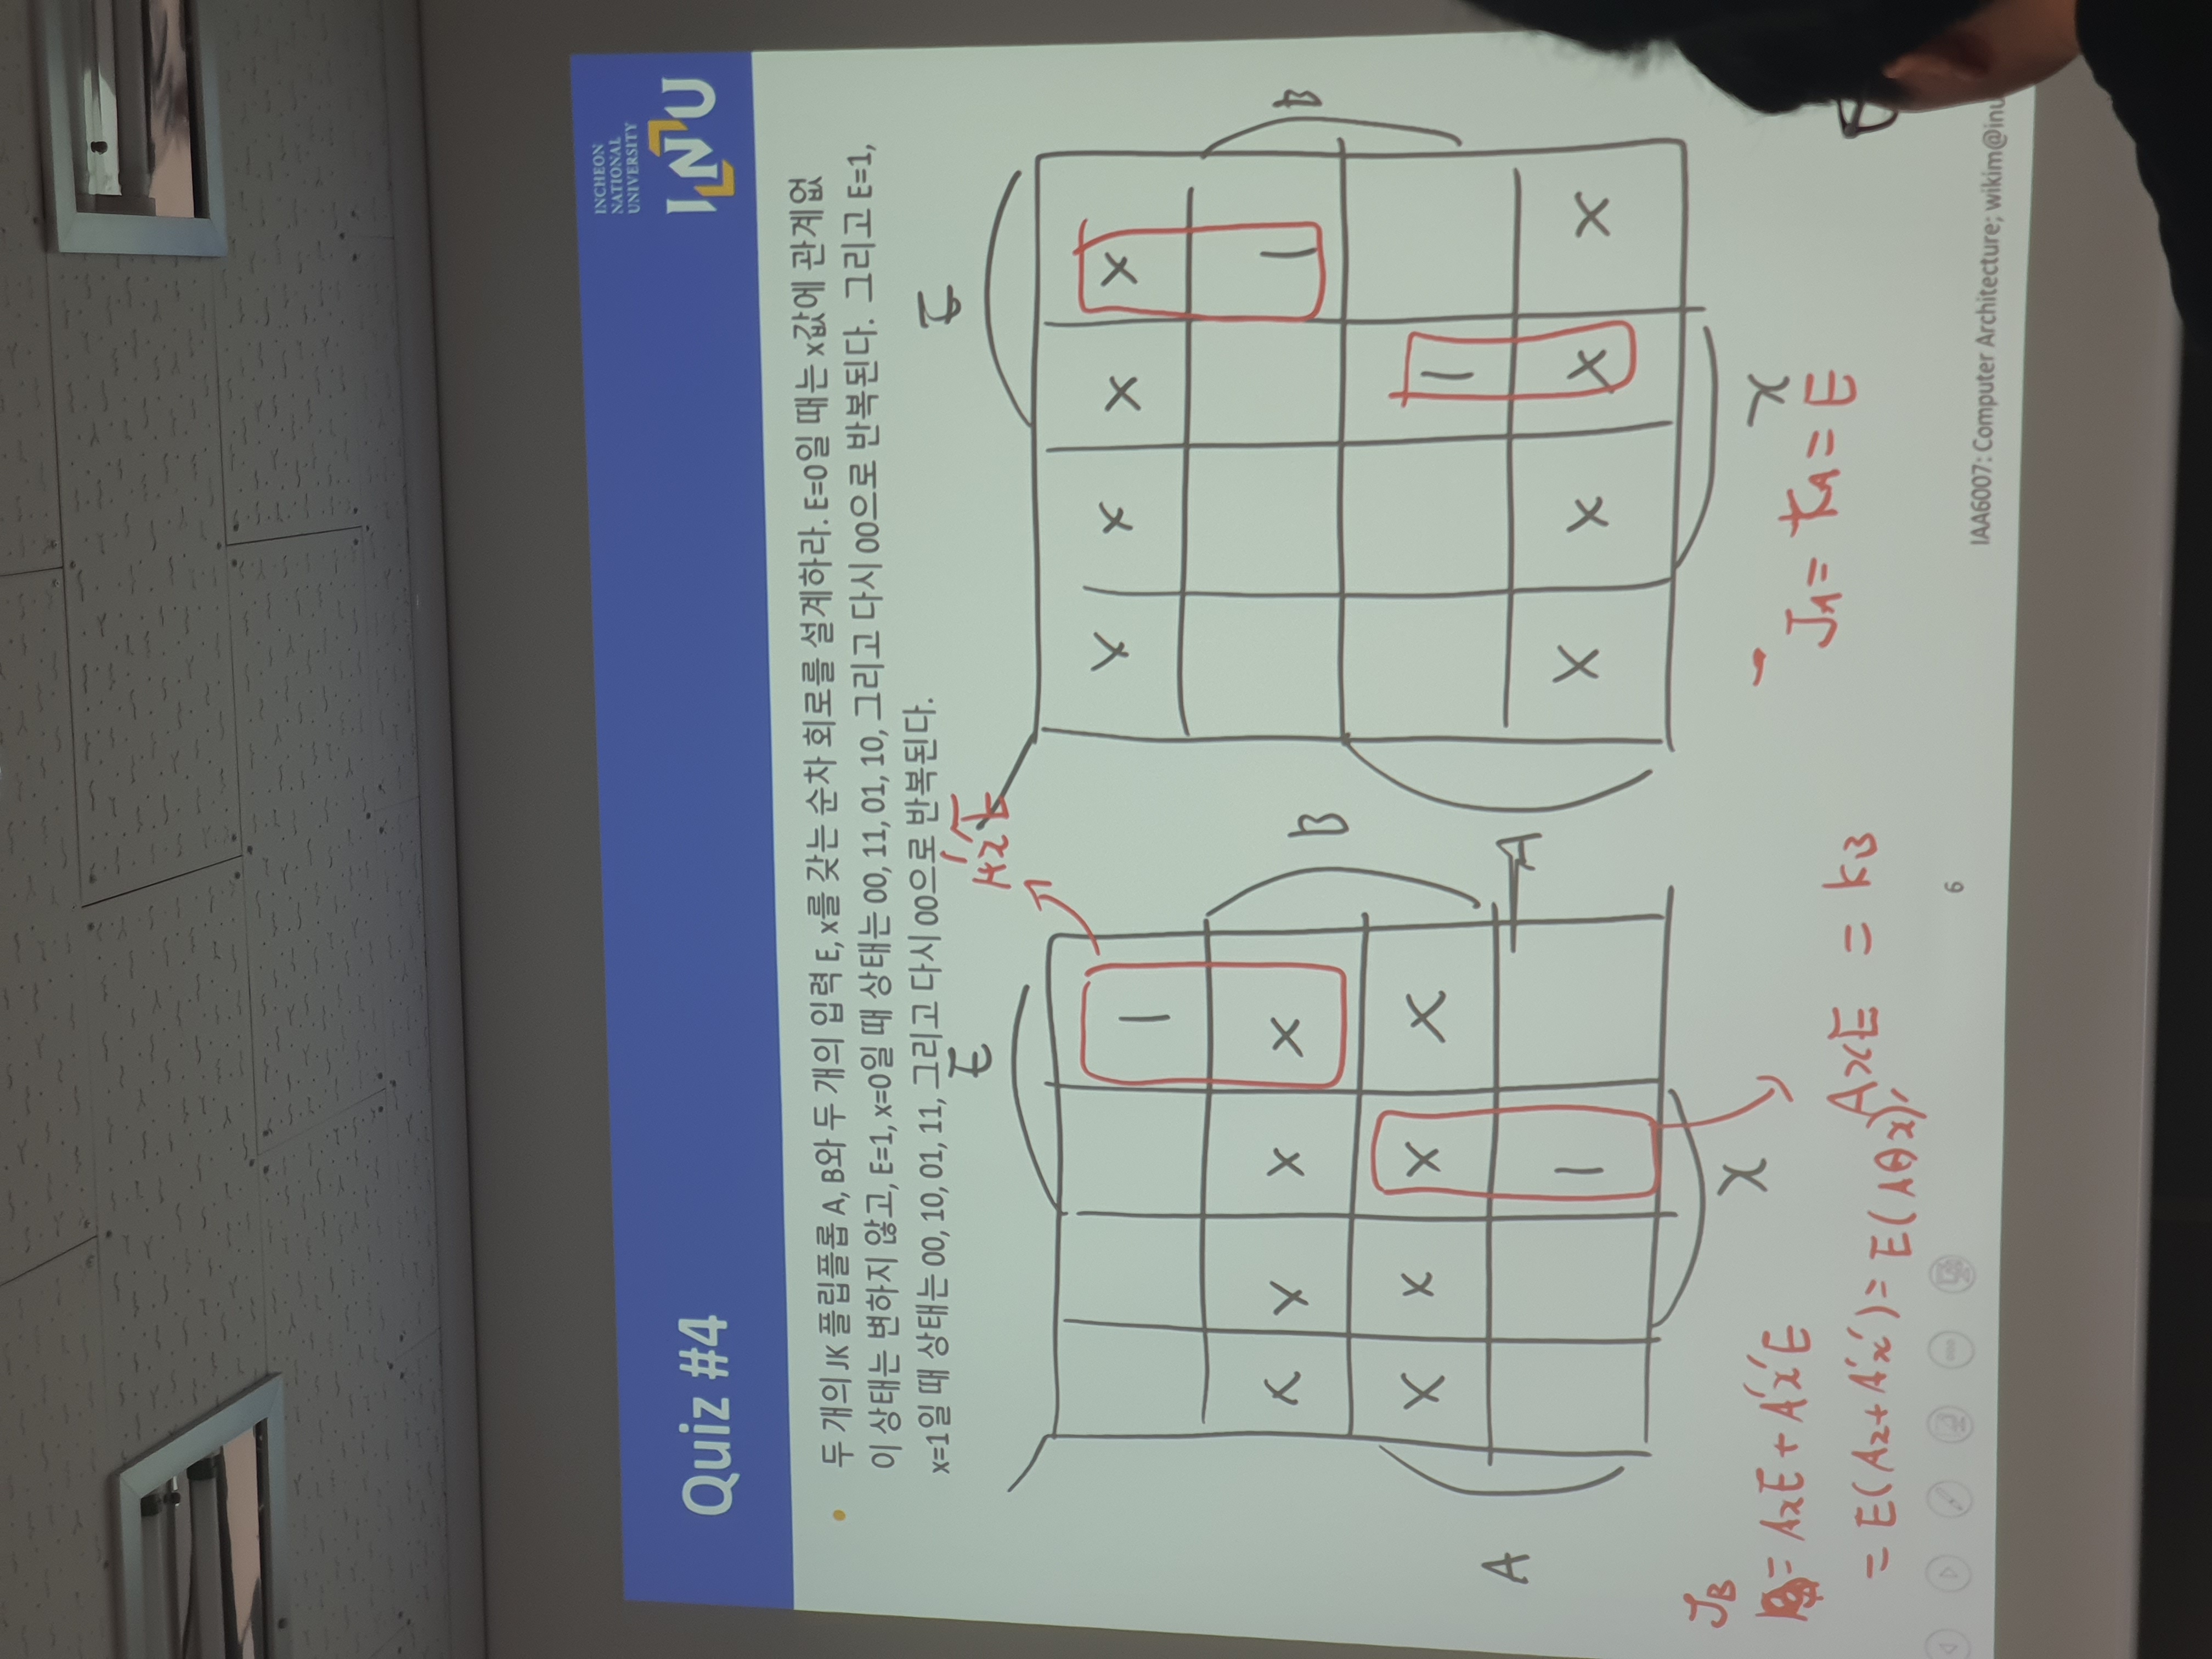 INCHEON
NATIONAL
UNIVERSITY
INU
Quiz #4
두 개의 JK 플립플롭 A, B와 두 개의 입력 E, x를 갖는 순차 회로를 설계하라. E=0일 때는 x값에 관계없
이 상태는 변하지 않고, E=1, x=0일 때 상태는 00, 11, 01, 10, 그리고 다시 00으로 반복된다. 그리고 E=1,
x=1일 때 상태는 00, 10, 01, 11, 그리고 다시 00으로 반복된다.
E
A'x'E
1
x x x x
x x x x
1
A
B
x
E
x x x x
1
1
x x x x
A
B
x
JB
= AxE + A'x'E
= E(Ax+A'x') = E(A⊕x)'
AxE = KB
JA = KA = E
6
IAA6007: Computer Architecture; wikim@inu